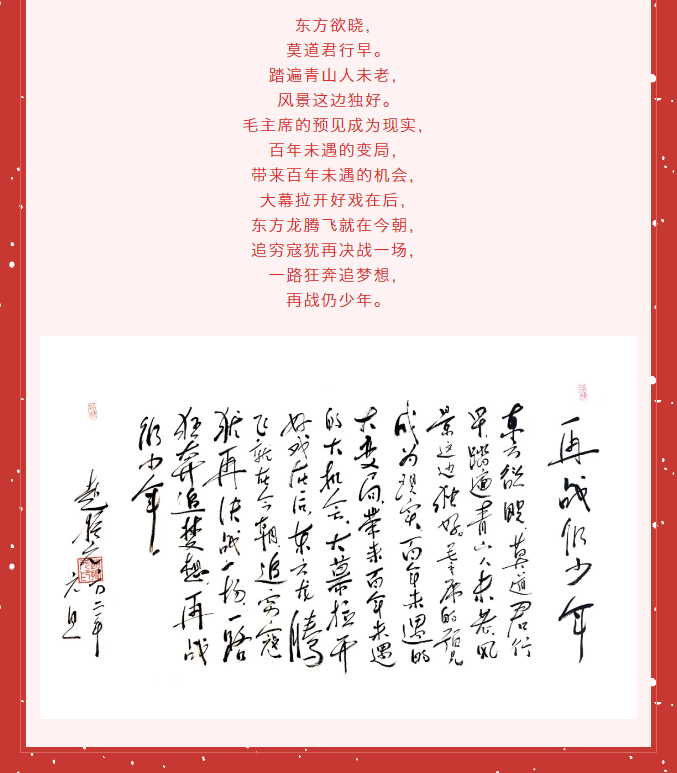 东方欲晓，
莫道君行早。
踏遍青山人未老，
风景这边独好。
毛主席的预见成为现实，
百年未遇的变局，
带来百年未遇的机会，
大幕拉开好戏在后，
东方龙腾飞就在今朝，
追穷寇犹再决战一场，
一路狂奔追梦想，
再战仍少年。
再战仍少年
東方欲晓莫道君行
早踏遍青山人未老风
景这边独好。毛主席的預見
成为现实百年未遇的
大变局，带来百年未遇
的大机会，大幕拉开
好戏在后，東方龙騰
飞就在今朝追穷寇
犹再决战一场一路
狂奔追梦想再战
仍少年
元旦